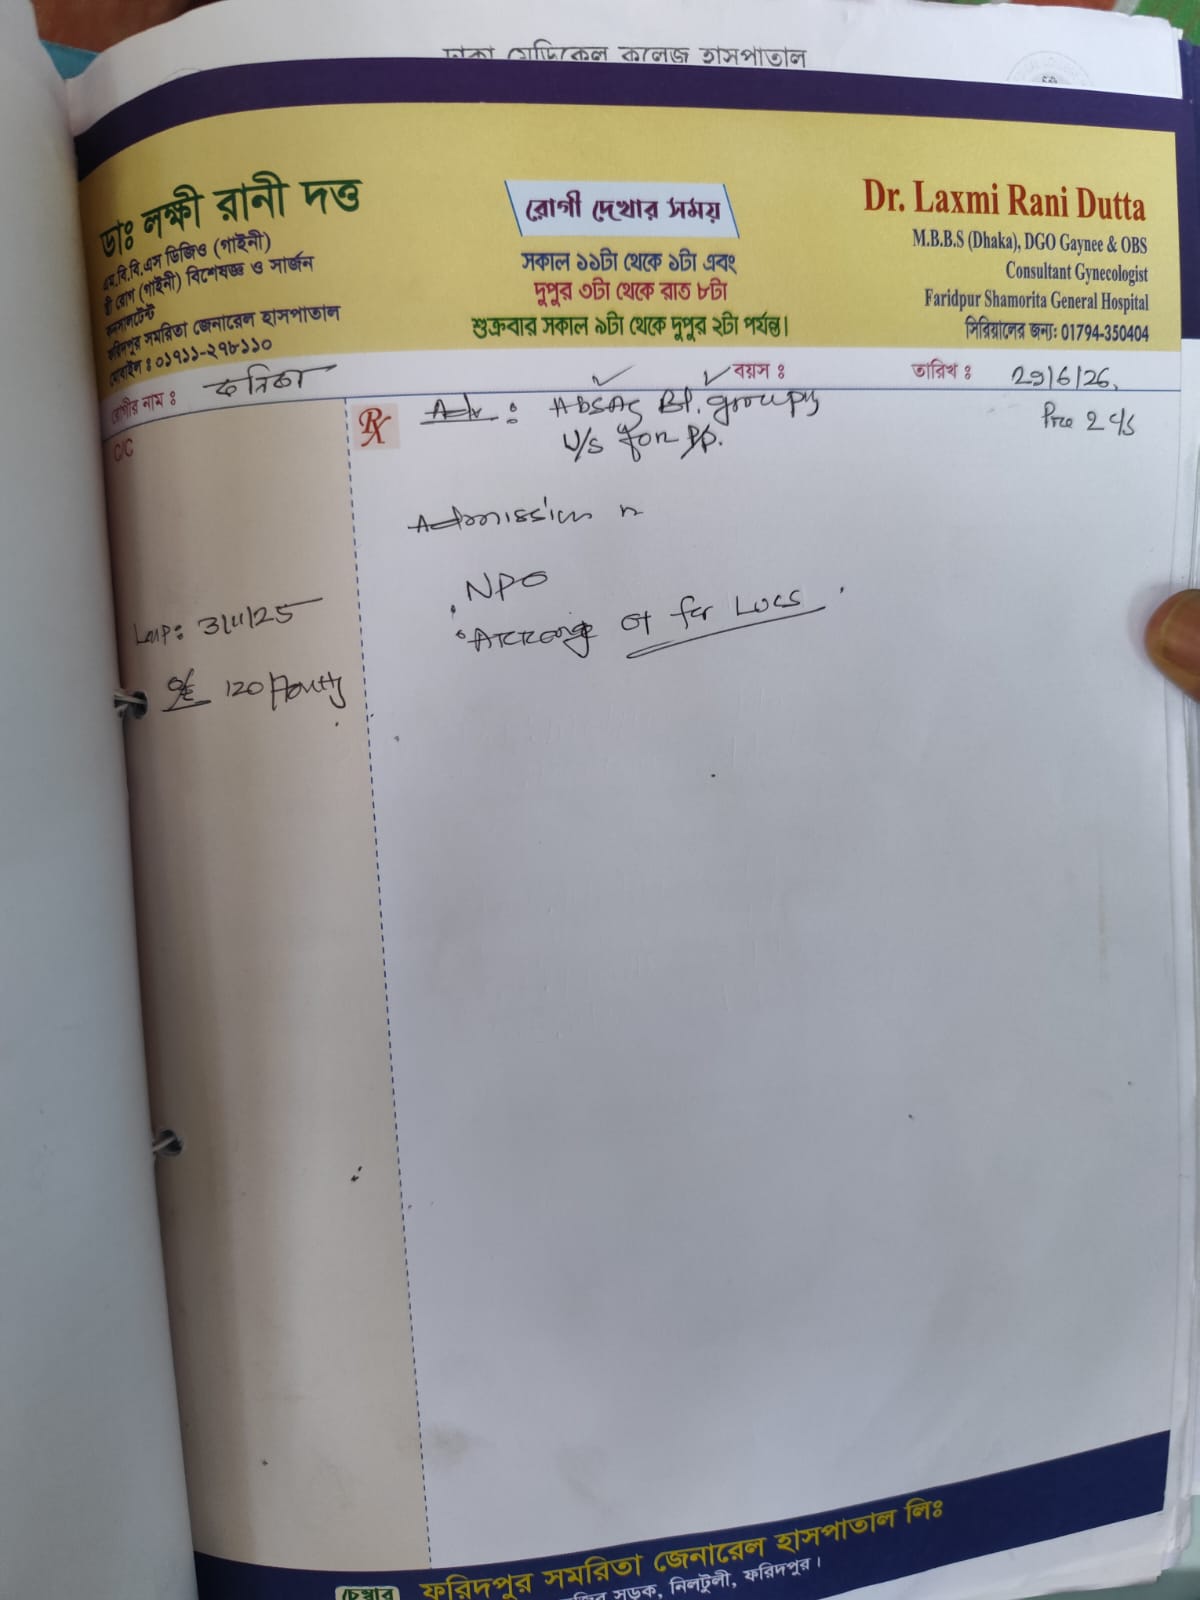 ঢাকা মেডিকেল কলেজ হাসপাতাল
ডাঃ লক্ষী রানী দত্ত
এম.বি.বি.এস ডিজিও (গাইনী)
স্ত্রী রোগ (গাইনী) বিশেষজ্ঞ ও সার্জন
কনসালটেন্ট
ফরিদপুর সমরিতা জেনারেল হাসপাতাল
মোবাইল : ০১৭১১-২৭৮১১০
রোগী দেখার সময়
সকাল ১১টা থেকে ১টা এবং
দুপুর ৩টা থেকে রাত ৮টা
শুক্রবার সকাল ৯টা থেকে দুপুর ২টা পর্যন্ত।
Dr. Laxmi Rani Dutta
M.B.B.S (Dhaka), DGO Gaynee & OBS
Consultant Gynecologist
Faridpur Shamorita General Hospital
সিরিয়ালের জন্য: 01794-350404
রোগীর নাম : বয়স : তারিখ : 29/6/26
C/C
Rx
Adv : HBSAg Bl. grouping
U/S for P/P.
2 C/S
Admission
NPO
Arrange OT for LUCS
LMP: 3/11/25
O/E 120/
চেম্বার
ফরিদপুর সমরিতা জেনারেল হাসপাতাল লিঃ
সড়ক, নিলটুলী, ফরিদপুর।